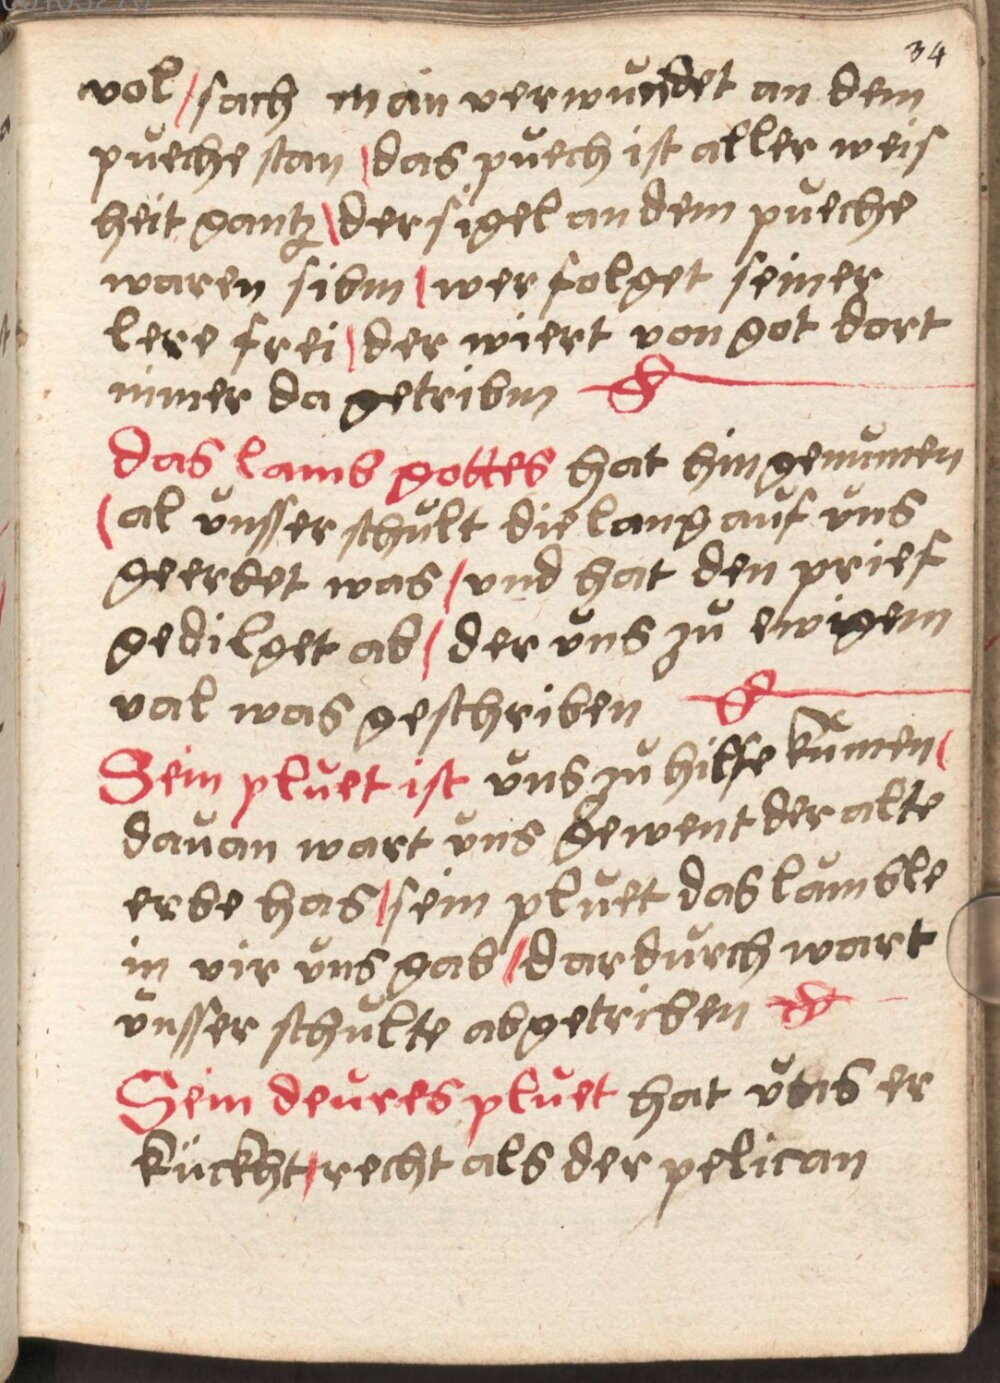 34
vol / sach man verwundet an dem
pueche stan / das puech ist aller weis
heit gantz / der sigel an dem pueche
waren sibm / wer folget seiner
lere frei / der wiert von got dort
nimer da getribm
das lamb gottes hat hin genumen
/ al ünsser schült die lang auf üns
geerbet was / vnd hat den prief
gedilget ab / der üns zü ewigem
val was geschriben
Sein pluet ist üns zü hilfe kumen /
dauan wart üns gewent der alte
erbe has / sein plüet das lamble
in vir üns gab / dardürch wart
ünsser schülte abgetriben
Sein deures pluet hat üns er
kückht / recht als der pelican